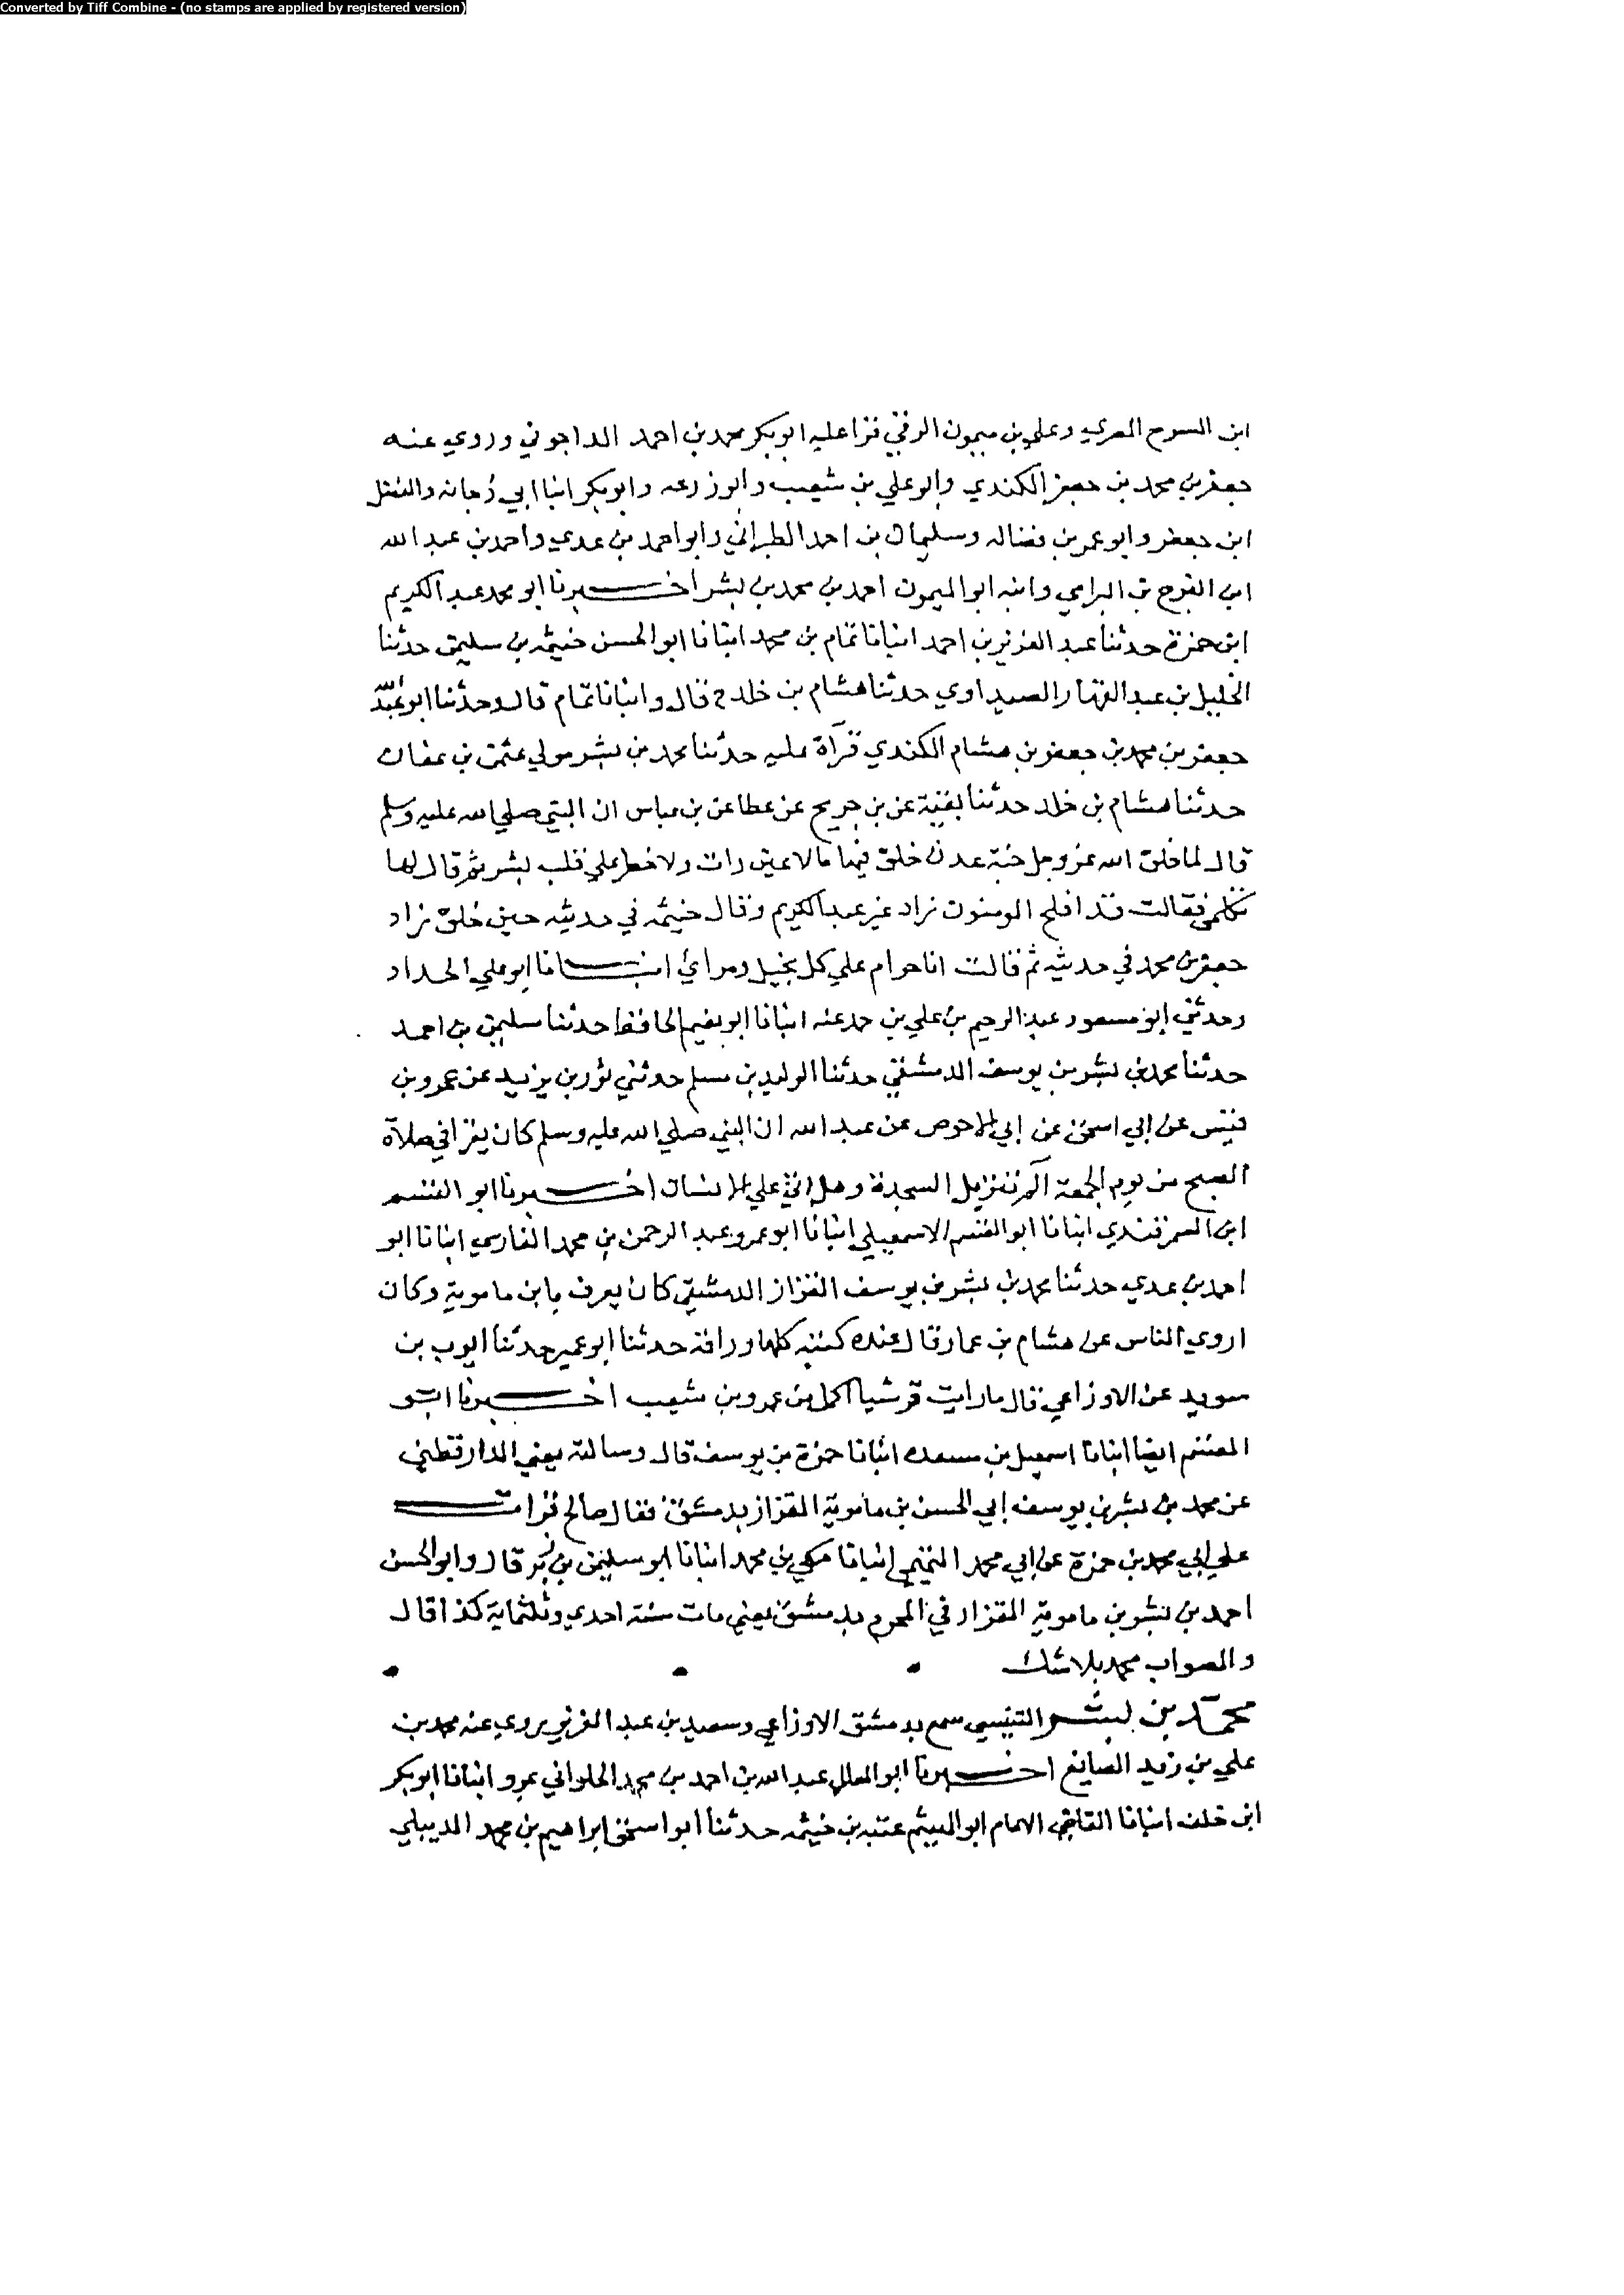 Converted by Tiff Combine - (no stamps are applied by registered version)
ابن السرح المصري وعلي بن ميمون الرقي قرا عليه ابو بكر محمد بن احمد الداجوني وروي عنه
جعفر بن محمد بن جعفر الكندي وابو علي بن شعيب وابو زرعه وابو بكر ابنا ابي دجانه والفضل
ابن جعفر وابو عمر بن فضاله وسليمان بن احمد الطبراني وابو احمد بن عدي واحمد بن عبد الله
ابن الفرج بن البرامي وابنه ابو الميمون احمد بن محمد بن بشر اخبرنا ابو محمد عبد الكريم
ابن حمزة حدثنا عبد العزيز بن احمد انبانا تمام بن محمد انبانا ابو الحسن خيثمه بن سليمن حدثنا
الخليل بن عبد القهار الصيداوي حدثنا هشام بن خلد ح قال وانبانا تمام قال وحدثنا ابو عبد الله
جعفر بن محمد بن جعفر بن هشام الكندي قرآة عليه حدثنا محمد بن بشر مولي عثمن بن عفان
حدثنا هشام بن خلد حدثنا بقية عن بن جريح عن عطا عن بن عباس ان النبي صلي الله عليه وسلم
قال لما خلق الله عز وجل جنة عدن خلق فيها مالا عين رات ولا خطر علي قلب بشر ثم قال لها
تكلمي فقالت قد افلح المومنون زاد غير عبد الكريم وقال خيثمه في حديثه حين خلق زاد
جعفر بن محمد في حديثه ثم قالت انا حرام علي كل بخيل ومراي انبانا ابو علي الحداد
وحدثني ابو مسعود عبد الرحيم بن علي بن حمد عنه انبانا ابو نعيم الحافظ حدثنا سليمن بن احمد
حدثنا محمد بن بشر بن يوسف الدمشقي حدثنا الوليد بن مسلم حدثني ثور بن يزيد عن عمرو بن
قيس عن ابي اسحق عن ابي الاحوص عن عبد الله ان النبي صلي الله عليه وسلم كان يقرا في صلاة
الصبح من يوم الجمعة آلم تنزيل السجدة وهل اتي علي الانسان اخبرنا ابو القسم
ابن السمرقندي انبانا ابو القسم الاسمعيلي انبانا ابو عمرو عبد الرحمن بن محمد الفارسي انبانا ابو
احمد بن عدي حدثنا محمد بن بشر بن يوسف القزاز الدمشقي كان يعرف بابن مامويه وكان
اروي الناس عن هشام بن عمار قال عنده كتبه كلها وراقة حدثنا ابو عمير حدثنا ايوب بن
سويد عن الاوزاعي قال مارايت قرشيا اكمل من عمرو بن شعيب اخبرنا ابو
القسم ايضا انبانا اسمعيل بن مسعده انبانا حمزة بن يوسف قال وسالته يعني الدارقطني
عن محمد بن بشر بن يوسف ابي الحسن بن مامويه القزاز بدمشق فقال صالح قرات
علي ابي محمد بن حمزة عن ابي محمد التميمي انبانا مكي بن محمد انبانا ابو سليمن بن زبر قال وابو الحسن
احمد بن بشر بن مامويه القزاز في المحرم بدمشق يعني مات سنة احدي وثلثماية كذا قال
والصواب محمد بلا شك
محمد بن بشر التنيسي سمع بدمشق الاوزاعي وسعيد بن عبد العزيز يروي عنه محمد بن
علي بن زيد الصايغ اخبرنا ابو المعالي عبد الله بن احمد بن محمد الحلواني بمرو انبانا ابو بكر
ابن خلف انبانا القاضي الامام ابو الهيثم عتبه بن خيثمه حدثنا ابو اسحق ابراهيم بن محمد الديبلي